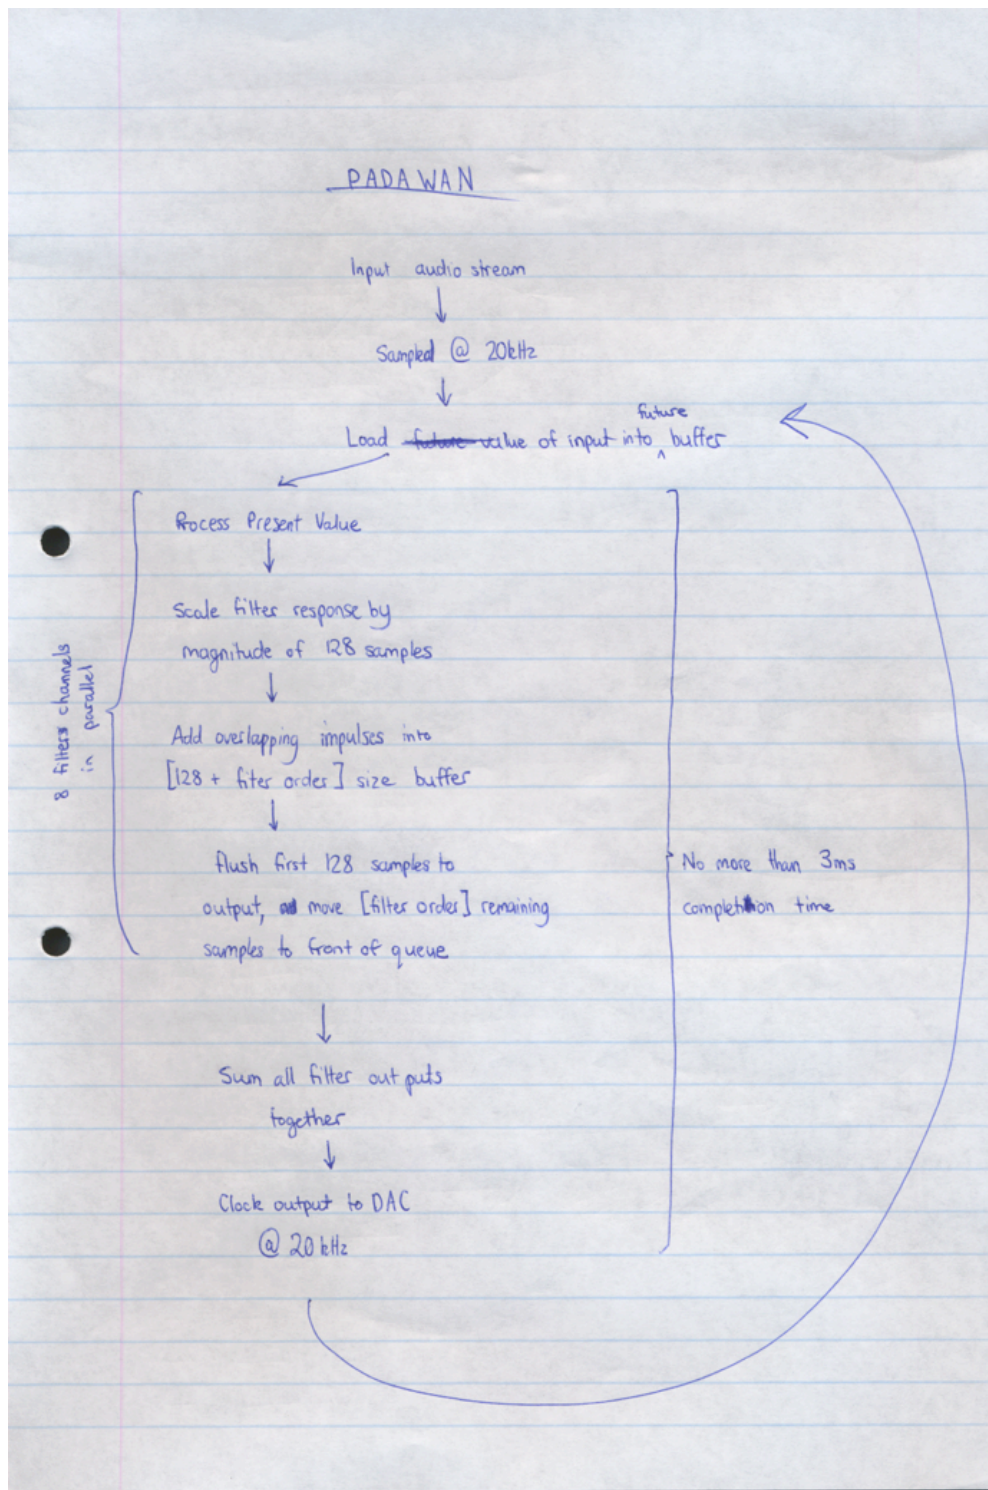 PADAWAN
Input audio stream
Sampled @ 20kHz
future
Load future value of input into ^ buffer
Process Present Value
Scale filter response by
magnitude of 128 samples
Add overlapping impulses into
[128 + fiter order] size buffer
flush first 128 samples to
output, move [filter order] remaining
samples to front of queue
8 filters channels
in parallel
No more than 3ms
completion time
Sum all filter outputs
together
Clock output to DAC
@ 20kHz